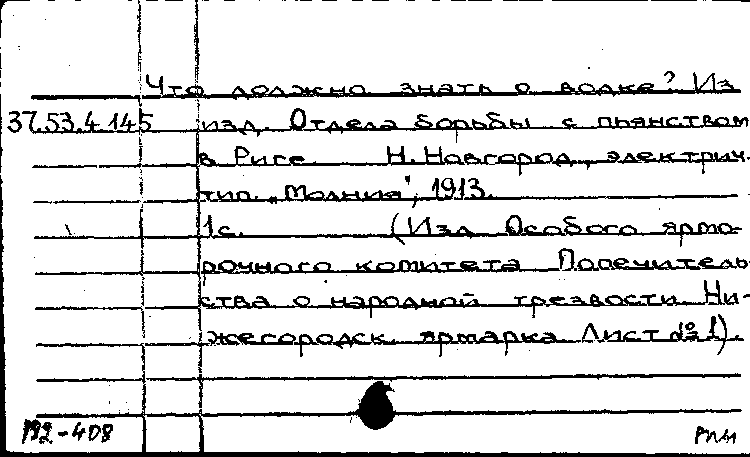 Что должно знать о водке? Из
37.53.4.145 изд. Отдела борьбы с пьянством
в Риге. Н. Новгород, электрич.
тип. „Молния", 1913.
1 с. (Изд. Особого ярма-
рочного комитета Попечитель-
ства о народной трезвости. Ни-
жегородск. ярмарка. Лист № 1).
192-408